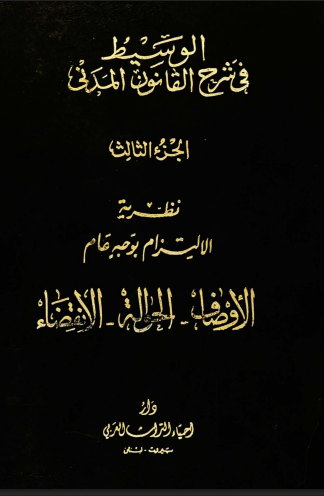 الوسيط
في شرح القانون المدني
الجزء الثالث
نظرية
الالتزام بوجه عام
الأوصاف - الحوالة - الانقضاء
دار
احياء التراث العربي
بيروت - لبنان